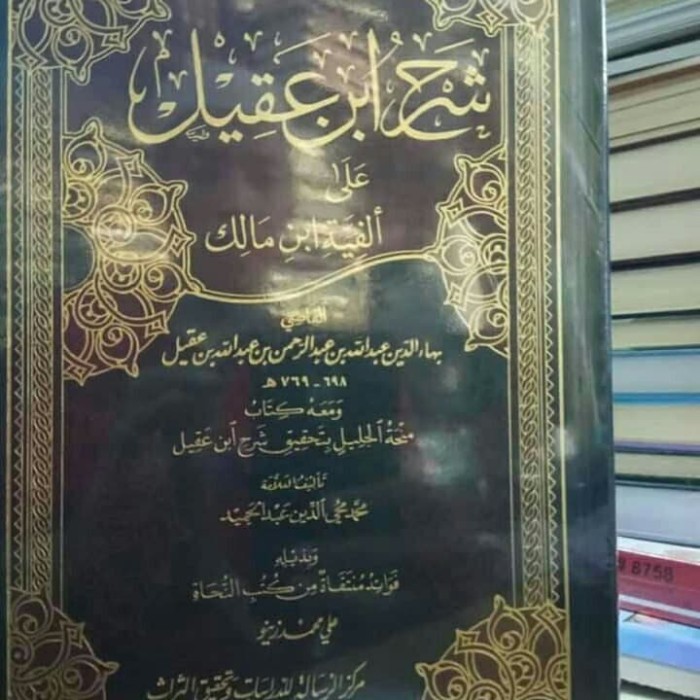 شَرْحُ ابْنِ عَقِيل
عَلَى
ألفِيَّةِ ابْنِ مَالِك
القاضي
بهاء الدين عبد الله بن عبد الرحمن بن عبد الله بن عقيل
٦٩٨ - ٧٦٩ هـ
وَمَعَهُ كِتَابُ
منحَة الجَليل بتَحقيق شَرح ابن عَقيل
تأليف العلّامة
محمّد محيي الدّين عَبد الحَميد
وَبِذَيله
فَوائِدُ مُنتَقَاةٌ مِن كُتُبِ النُّحَاة
علي محمد زينو
مركز الرسالة للدراسات وتحقيق التراث
# 8758